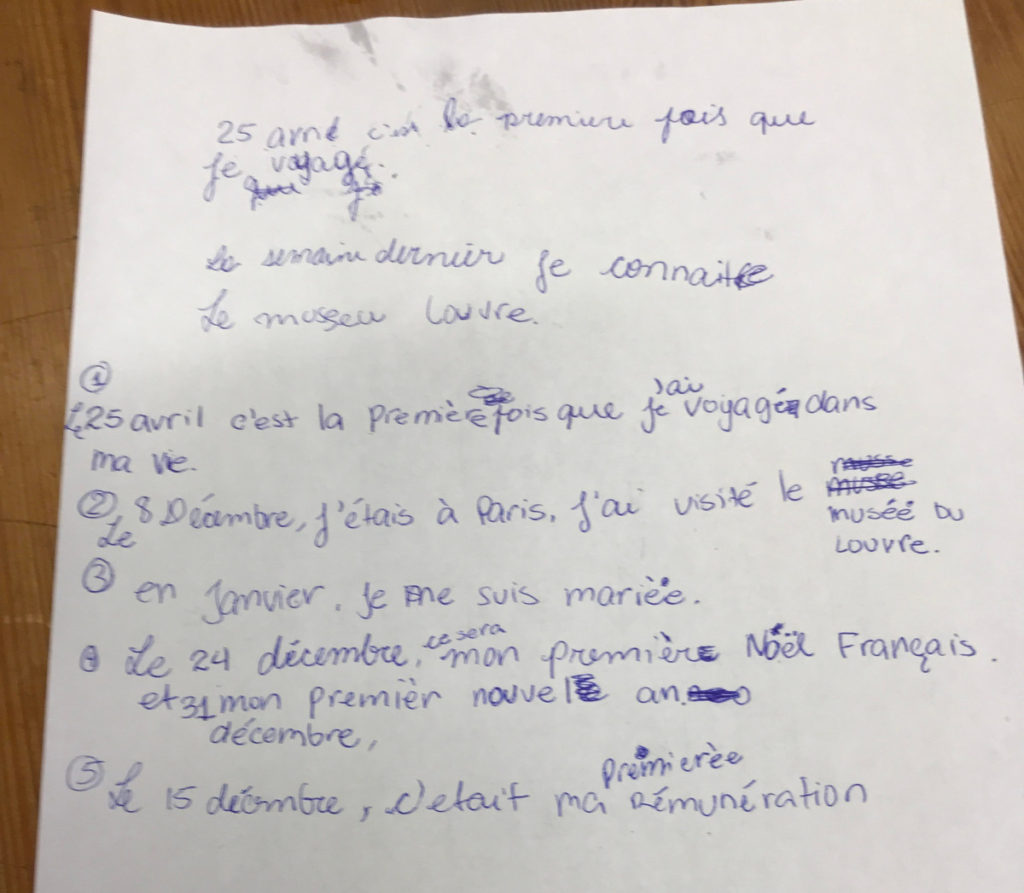 25 avril c'est la premiere fois que
je voyagé.
La semaine dernier je connaitre
Le musseu Louvre.
①
Le 25 avril c'est la première fois que j'ai voyagé dans
ma vie.
② Le 8 Décembre, j'étais à Paris. J'ai visité le
musée DU
LOUVRE.
③ en Janvier. Je me suis mariée.
④ Le 24 décembre, ce sera mon première Noël Français.
et 31 mon premièr nouvel an.
décembre,
premierèe
⑤ Le 15 décembre, c'etait ma rémunération